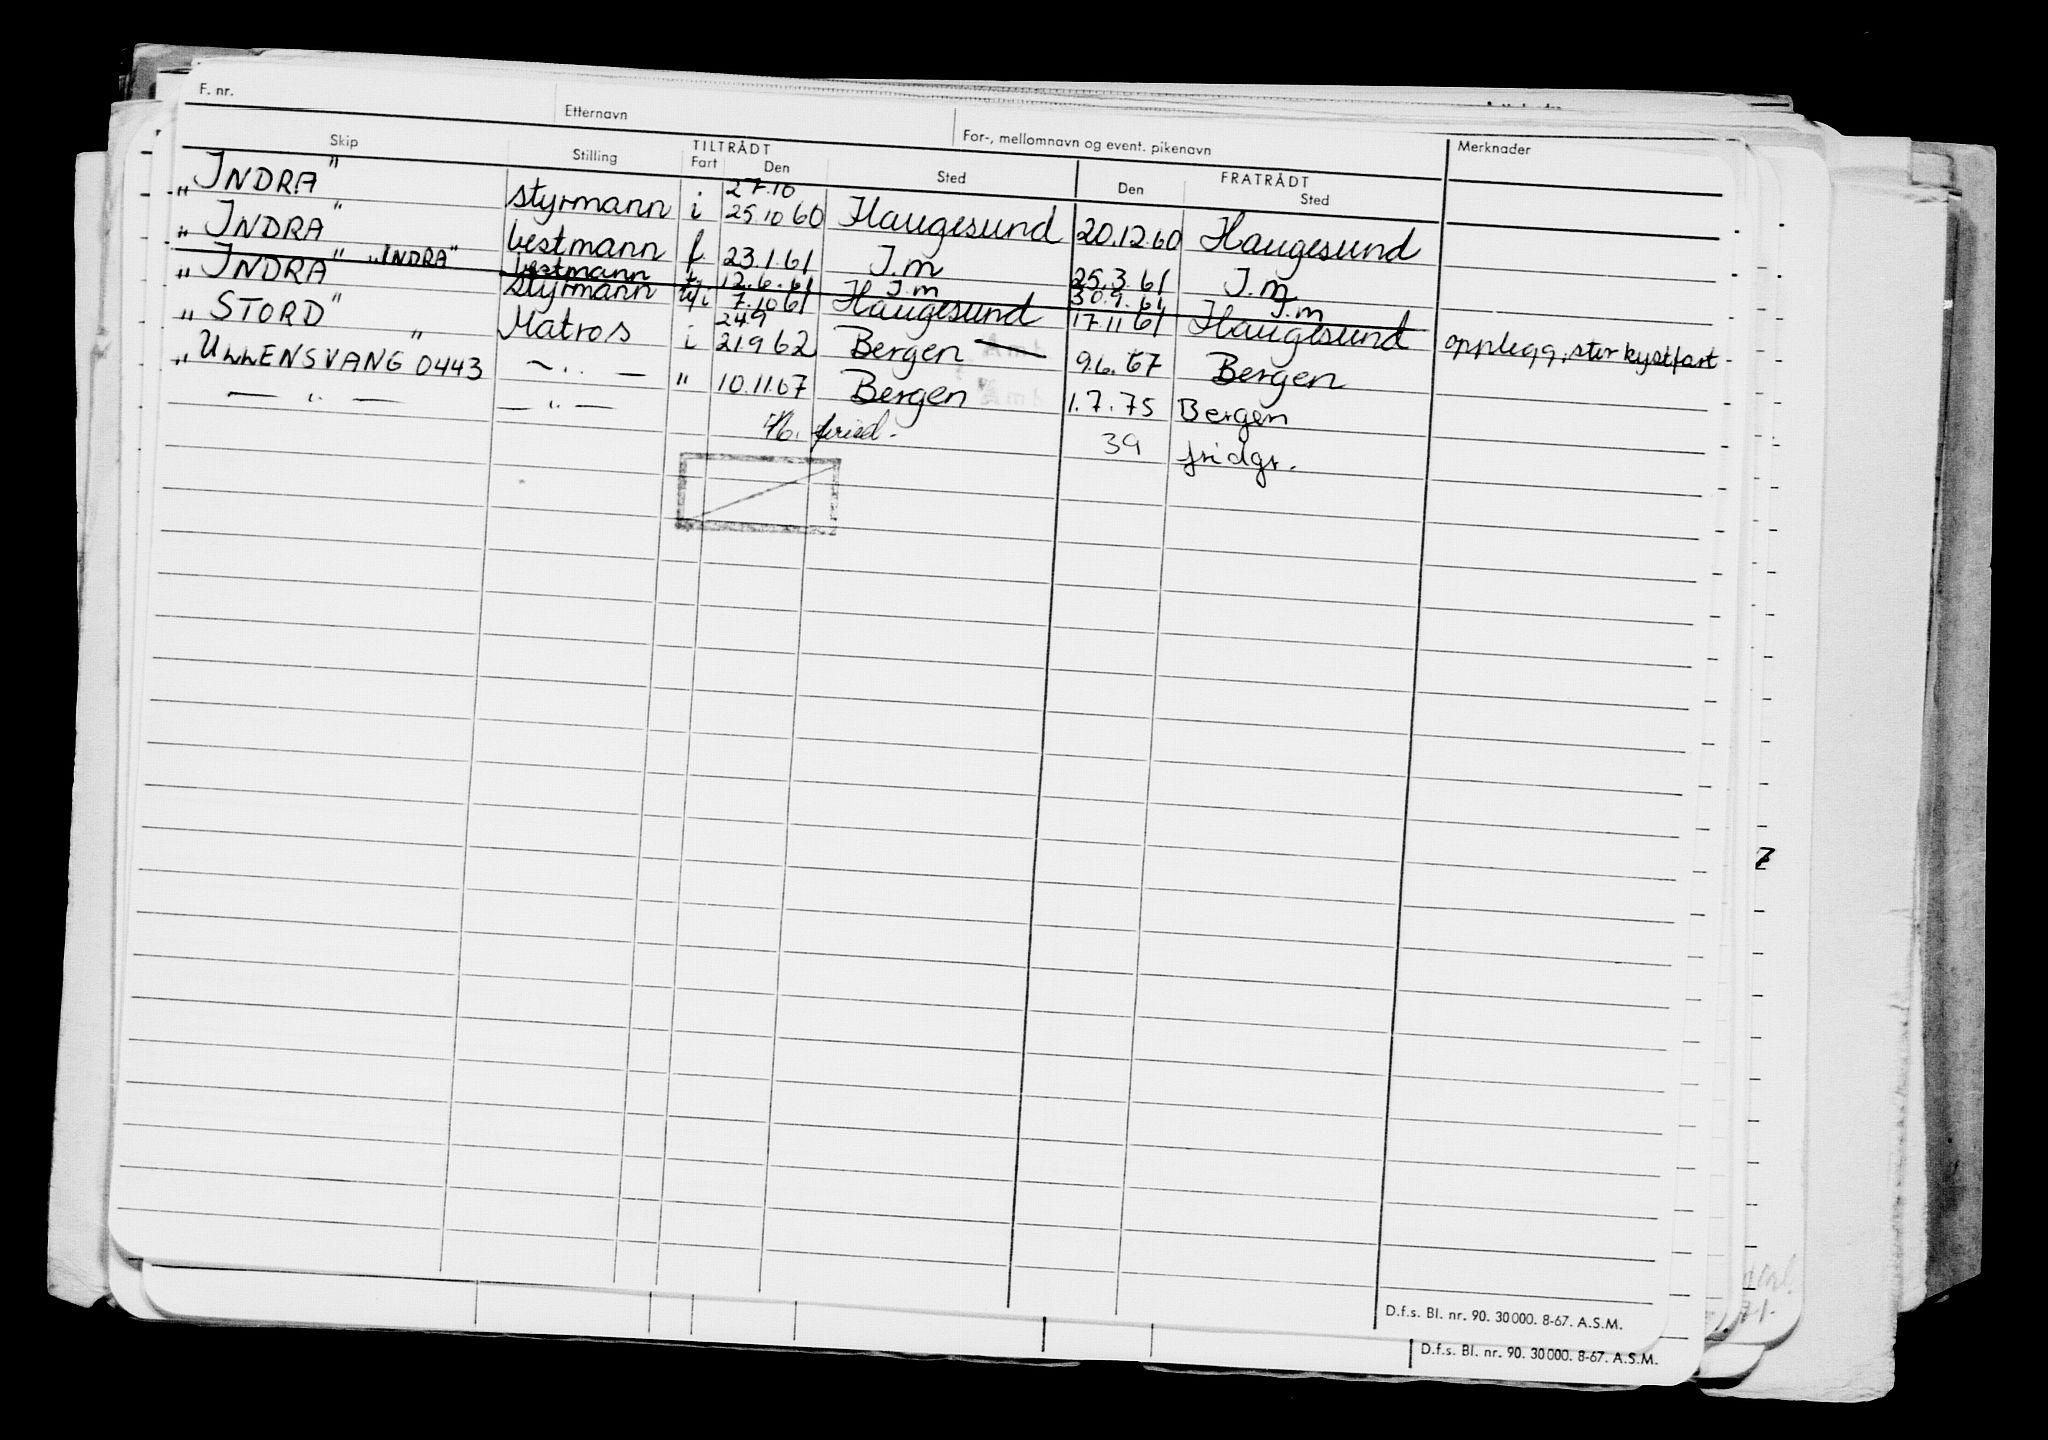 F. nr.
Etternavn
For-, mellomnavn og event. pikenavn
Merknader
Skip
Stilling
TILTRÅDT
Fart
Den
Sted
FRATRÅDT
Den
Sted
27.10
„INDRA" styrmann i 25.10 60 Haugesund 20.12.60 Haugesund
„INDRA" bestmann f. 23.1.61 I.m 25.3.61 I.m
„INDRA" bestmann 12.6.61 I.m 30.9.61 I.m
„INDRA" styrmann 7.10 61 Haugesund 17.11 61 Haugesund opplegg, stor kystfart
24.9
„STORD" Matros i 21.9 62 Bergen 9.6.67 Bergen
„ULLENSVANG" 0443 — „ — " 10.11.67 Bergen 1.7.75 Bergen
— „ — — „ — 39 fridgr.
D.f.s. Bl. nr. 90. 30 000. 8-67. A.S.M.
D.f.s. Bl. nr. 90. 30 000. 8-67. A.S.M.